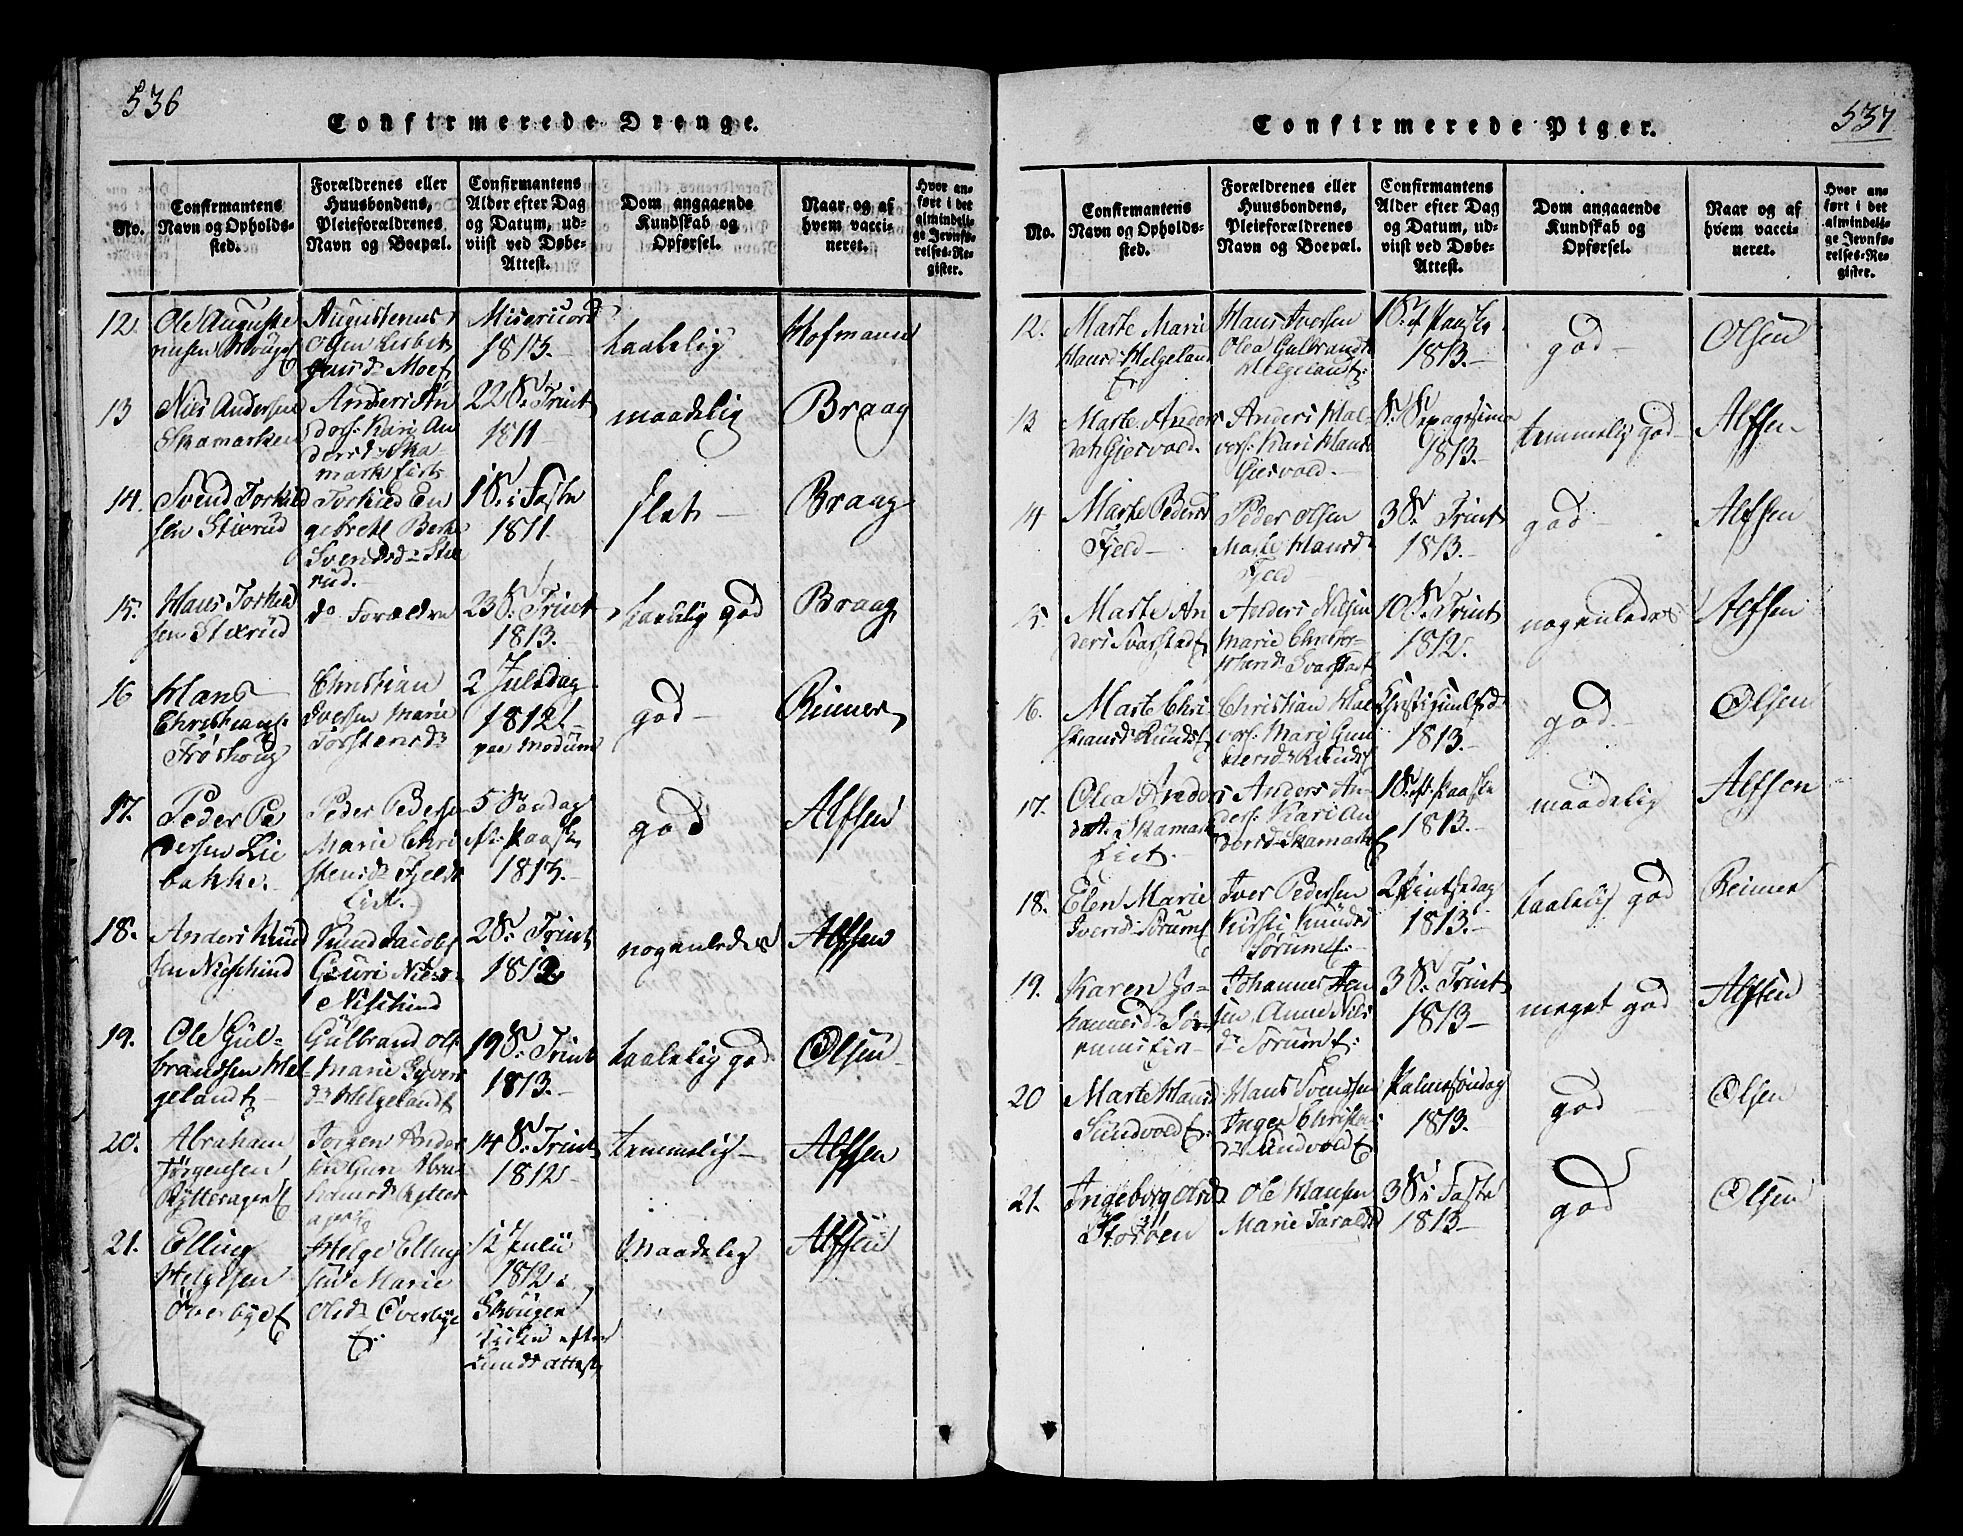 536
Confirmerede Drenge.
No.
Confirmantens
Navn og Opholds-
sted.
Forældrenes eller
Huusbondens,
Pleieforældrenes
Navn og Boepæl.
Confirmantens
Alder efter Dag
og Datum, ud-
viist ved Døbe-
Attest.
Dom angaaende
Kundskab og
Opførsel.
Naar og af
hvem vacci-
neret.
Hvor an-
ført i det
almindeli-
ge Jevnfø-
relses-Re-
gister.
12.
Ole Auguste
Augustenus
Olsen Lisbet
Misericord
1813.
taalelig
Hofmann
13
Niels Andersen
Skamarken
Anders An
ders: Kari An
dersd: Ska
mark
22 S: Trint
1811
maadelig
Braag
14.
Svend Torkild
sen Stixrud
Torkild En
gebreth
Svendsd: Stix
rud.
1 S: i Faste
1811.
slet
Braag
15.
Hans Torkild
sen Stixrud
do Forældre
23 S: Trint
1813.
taalelig god
Braag
16
Hans
Christians:
Frøshoug
Christian
Iversen Marie
Torstensd:
2 Juledag
1812.
paa Modum
god
Reimer
17.
Peder Pe
dersen Lie
bakke.
Peder Pedersen
Marie Chri
stensd: Fjeld
Eiet.
5 Søndag
eft: Paaske
1813.
god
Alfsen
18.
Anders Knud
sen
Knud Jacobs
Guri Niels
2 S: Trint
1812
nogenledes
Alfsen
19.
Ole Gul-
brandsen Hel
gelandt
Gulbrand Ols:
Marie Syvers
d: Helgelandt
19 S: Trint
1813.
taalelig god
Olsen
20.
Abraham
Jørgensen
Rytteragerf
Jørgen Ander
sen Guri Abra
hamsd: Rytter
ager
14 S: Trint
1812
temmelig
Alfsen
21.
Elling
Helgesen
Øverbye
Helge Elling
sen Marie
Olsd: Øverbye
12 Julii
1812.
efter
Lunds attest
maadelig
Alfsen
537
Confirmerede Piger.
No.
Confirmantens
Navn og Opholds-
sted.
Forældrenes eller
Huusbondens,
Pleieforældrenes
Navn og Boepæl.
Confirmantens
Alder efter Dag
og Datum, ud-
viist ved Døbe-
Attest.
Dom angaaende
Kundskab og
Opførsel.
Naar og af
hvem vacci-
neret.
Hvor an-
ført i det
almindeli-
ge Jevnfø-
relses-Re-
gister.
12.
Marte Marie
Hansd: Helgeland
Hans Iversen
Olea Gulbrands
Helgelandt
1 S: ef Paaske
1813.
god
Olsen
13
Marte Anders
dat: Gjesvold.
Anders Hal
vors: Kari Hans
Gjesvold.
S: Sepuagesima
1813.
temmelig god
Alfsen
14
Marte Pedersd
Fjeld
Peder Olsen
Marte Hansd:
Fjeld
3 S: Trint
1813.
god
Alfsen
15
Marte An
ders Svarstad
Anders Nilsen
Marie Christof-
Svarstad
10 S: Trint
1812.
nogenledes
Alfsen
16.
Marte Chri
stiansd: Runds
Christian Hal
vors: Mari Gun
nersd: Runds
Christi himlfrd
1813.
god
Olsen
17.
Olea Anders
dat. Skamark
Eiet.
Anders An
ders: Kari An
dersd: Skamark
1 S: eft Paaske
1813.
maadelig
Alfsen
18.
Elen Marie
Iversd: Sørum
Iver Pedersen
Kirsti Knudsd
Sørum
2 Pintsedag
1813.
taalelig god
Reimer
19.
Karen Jo-
hannesd: Sø-
rums Eie
Johannes Jen
sen Anne Nils
d: Sørum
3 S: Trint
1813
meget god
Alfsen
20
Marte Hansd
Sundvold
Hans Svendsen
Inger Christo
d: Sundvold
Palmesøndag
1813.
god
Olsen
21.
Ingeborg Olsd
Storøen
Ole Hansen
Marie Taralds
3 S: i Faste
1813
god
Olsen